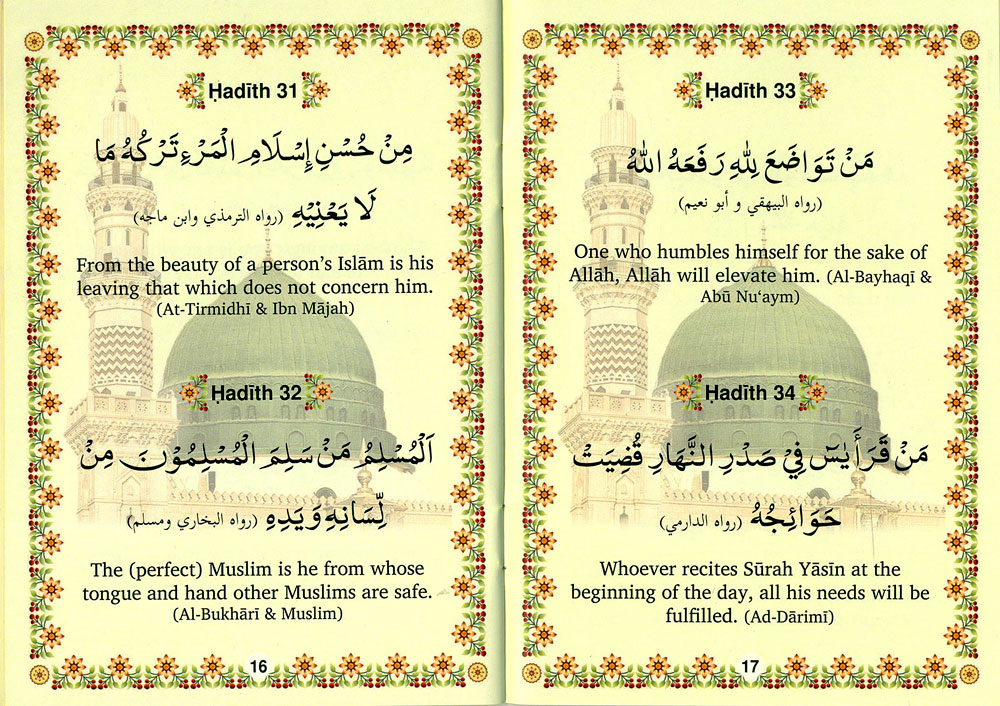 Ḥadīth 31
مِنْ حُسْنِ إِسْلَامِ الْمَرْءِ تَرْكُهُ مَا
لَا يَعْنِيْهِ (رواه الترمذي وابن ماجه)
From the beauty of a person’s Islām is his
leaving that which does not concern him.
(At-Tirmidhī & Ibn Mājah)
Ḥadīth 32
اَلْمُسْلِمُ مَنْ سَلِمَ الْمُسْلِمُوْنَ مِنْ
لِّسَانِهِ وَيَدِهِ (رواه البخاري ومسلم)
The (perfect) Muslim is he from whose
tongue and hand other Muslims are safe.
(Al-Bukhārī & Muslim)
16
Ḥadīth 33
مَنْ تَوَاضَعَ لِلّٰهِ رَفَعَهُ اللّٰهُ
(رواه البيهقي و أبو نعيم)
One who humbles himself for the sake of
Allāh, Allāh will elevate him. (Al-Bayhaqī &
Abū Nu‘aym)
Ḥadīth 34
مَنْ قَرَأَ يٰسٓ فِيْ صَدْرِ النَّهَارِ قُضِيَتْ
حَوَائِجُهُ (رواه الدارمي)
Whoever recites Sūrah Yāsīn at the
beginning of the day, all his needs will be
fulfilled. (Ad-Dārimī)
17